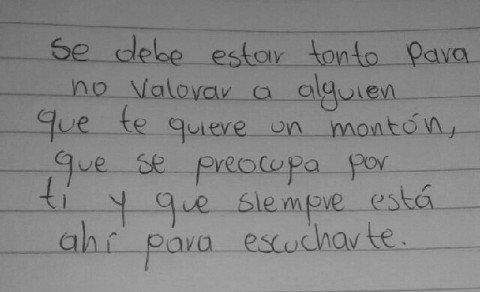 se debe estar tonto para
no valorar a alguien
que te quiere un montón,
que se preocupa por
ti y que siempre está
ahí para escucharte.